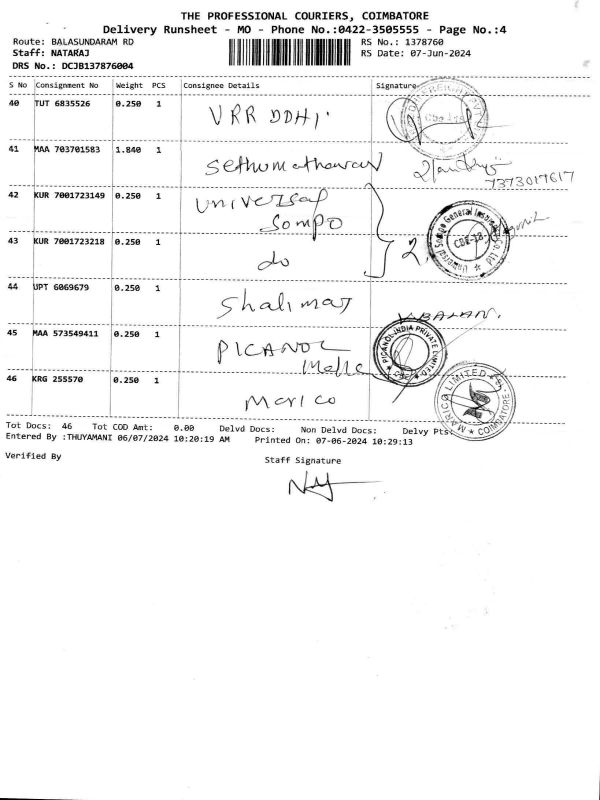 THE PROFESSIONAL COURIERS, COIMBATORE
Delivery Runsheet - MO - Phone No.:0422-3505555 - Page No.:4
Route: BALASUNDARAM RD RS No.: 1378760
Staff: NATARAJ RS Date: 07-Jun-2024
DRS No.: DCJB137876004
S No Consignment No Weight PCS Consignee Details Signature
40 TUT 6835526 0.250 1 VRR DDHI
41 MAA 703701583 1.840 1 Sethumathavan
7373017617
42 KUR 7001723149 0.250 1 Universal
Sompo
Universal Sompo General Insurance Co. Ltd
CBE-18
43 KUR 7001723218 0.250 1 do 2.
44 UPT 6069679 0.250 1 Shalimar V.BALAN.
45 MAA 573549411 0.250 1 PICANOL
PICANOL INDIA PRIVATE LIMITED
CBE
46 KRG 255570 0.250 1 Marico
MARICO LIMITED
COIMBATORE
Tot Docs: 46 Tot COD Amt: 0.00 Delvd Docs: Non Delvd Docs: Delvy Pts:
Entered By :THUYAMANI 06/07/2024 10:20:19 AM Printed On: 07-06-2024 10:29:13
Verified By Staff Signature